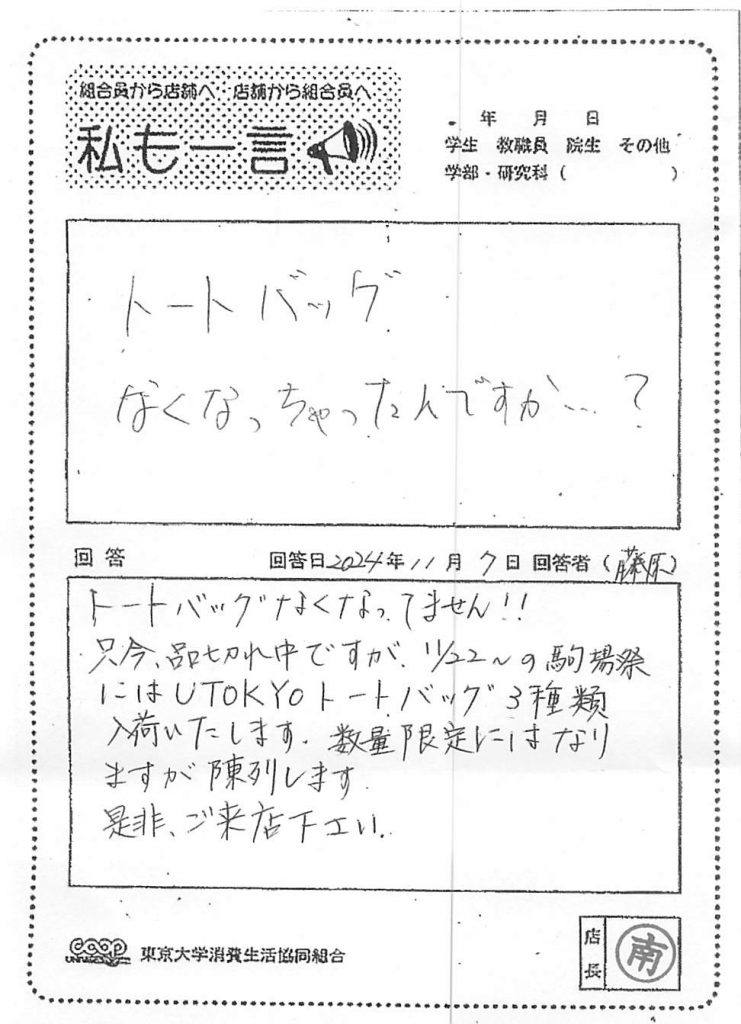 組合員から店舗へ 店舗から組合員へ
私も一言
年 月 日
学生 教職員 院生 その他
学部・研究科( )
トートバッグ
なくなっちゃったんですか…?
回答 回答日2024年11月7日 回答者(藤原)
トートバッグなくなってません!!
只今、品切れ中ですが、11/22~の駒場祭
にはUTOKYOトートバッグ3種類
入荷いたします。数量限定にはなり
ますが陳列します。
是非、ご来店下エい。
coop 東京大学消費生活協同組合
店長 南